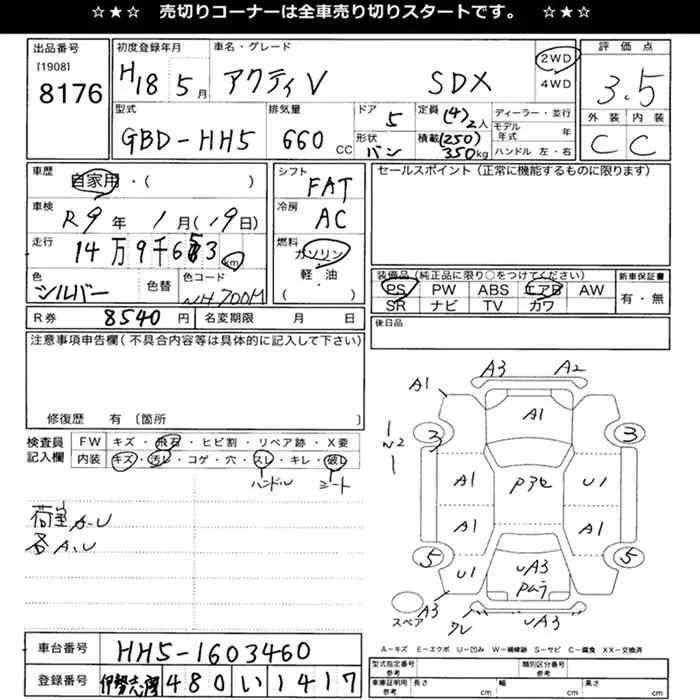 ☆★☆ 売切りコーナーは全車売り切りスタートです。 ☆★☆
出品番号 初度登録年月 車名・グレード 評価点
[1908] 8176 H18 5月 アクティV SDX 2WD 4WD 3.5
型式 排気量 ドア 定員 ディーラー・並行 外装 内装
GBD-HH5 660CC 5 (4) 2人 モデル年式 年 C C
形状 バン 積載 (250) 350kg ハンドル 左・右
車歴 自家用・( ) シフト FAT セールスポイント (正規に機能するものに限ります)
車検 R9年 1月(19日) 冷房 AC
走行 14万9千6 3km 燃料 ガソリン
軽・油
( )
色 シルバー 色替 色コード NH700M
装備品(純正品に限り○をつけてください) 新車保証書
PS PW ABS エアB AW 有・無
SR ナビ TV カワ
R券 8540円 名変期限 月 日 後日品
注意事項申告欄(不具合内容等は具体的に記入して下さい)
修復歴 有 〔箇所 〕
検査員記入欄 FW キズ・飛石・ヒビ割・リペア跡・X要
内装 キズ・汚レ・コゲ・穴・スレ・キレ・破レ
ハンドル シート
荷室A.U
各A.U
A3 A2
A1 A1
3 3
A1 U1
A1 A1
5 5
U1 UA3
A3 UA3
スペア
A-キズ E-エクボ U-凹み W-補修跡 S-サビ C-腐食 XX-交換済
車台番号 HH5-1603460
登録番号 伊勢志摩 480 い 1417
型式指定番号 参考 類別区分番号 参考
車庫証明用 参考 長さ cm 幅 cm 高さ cm